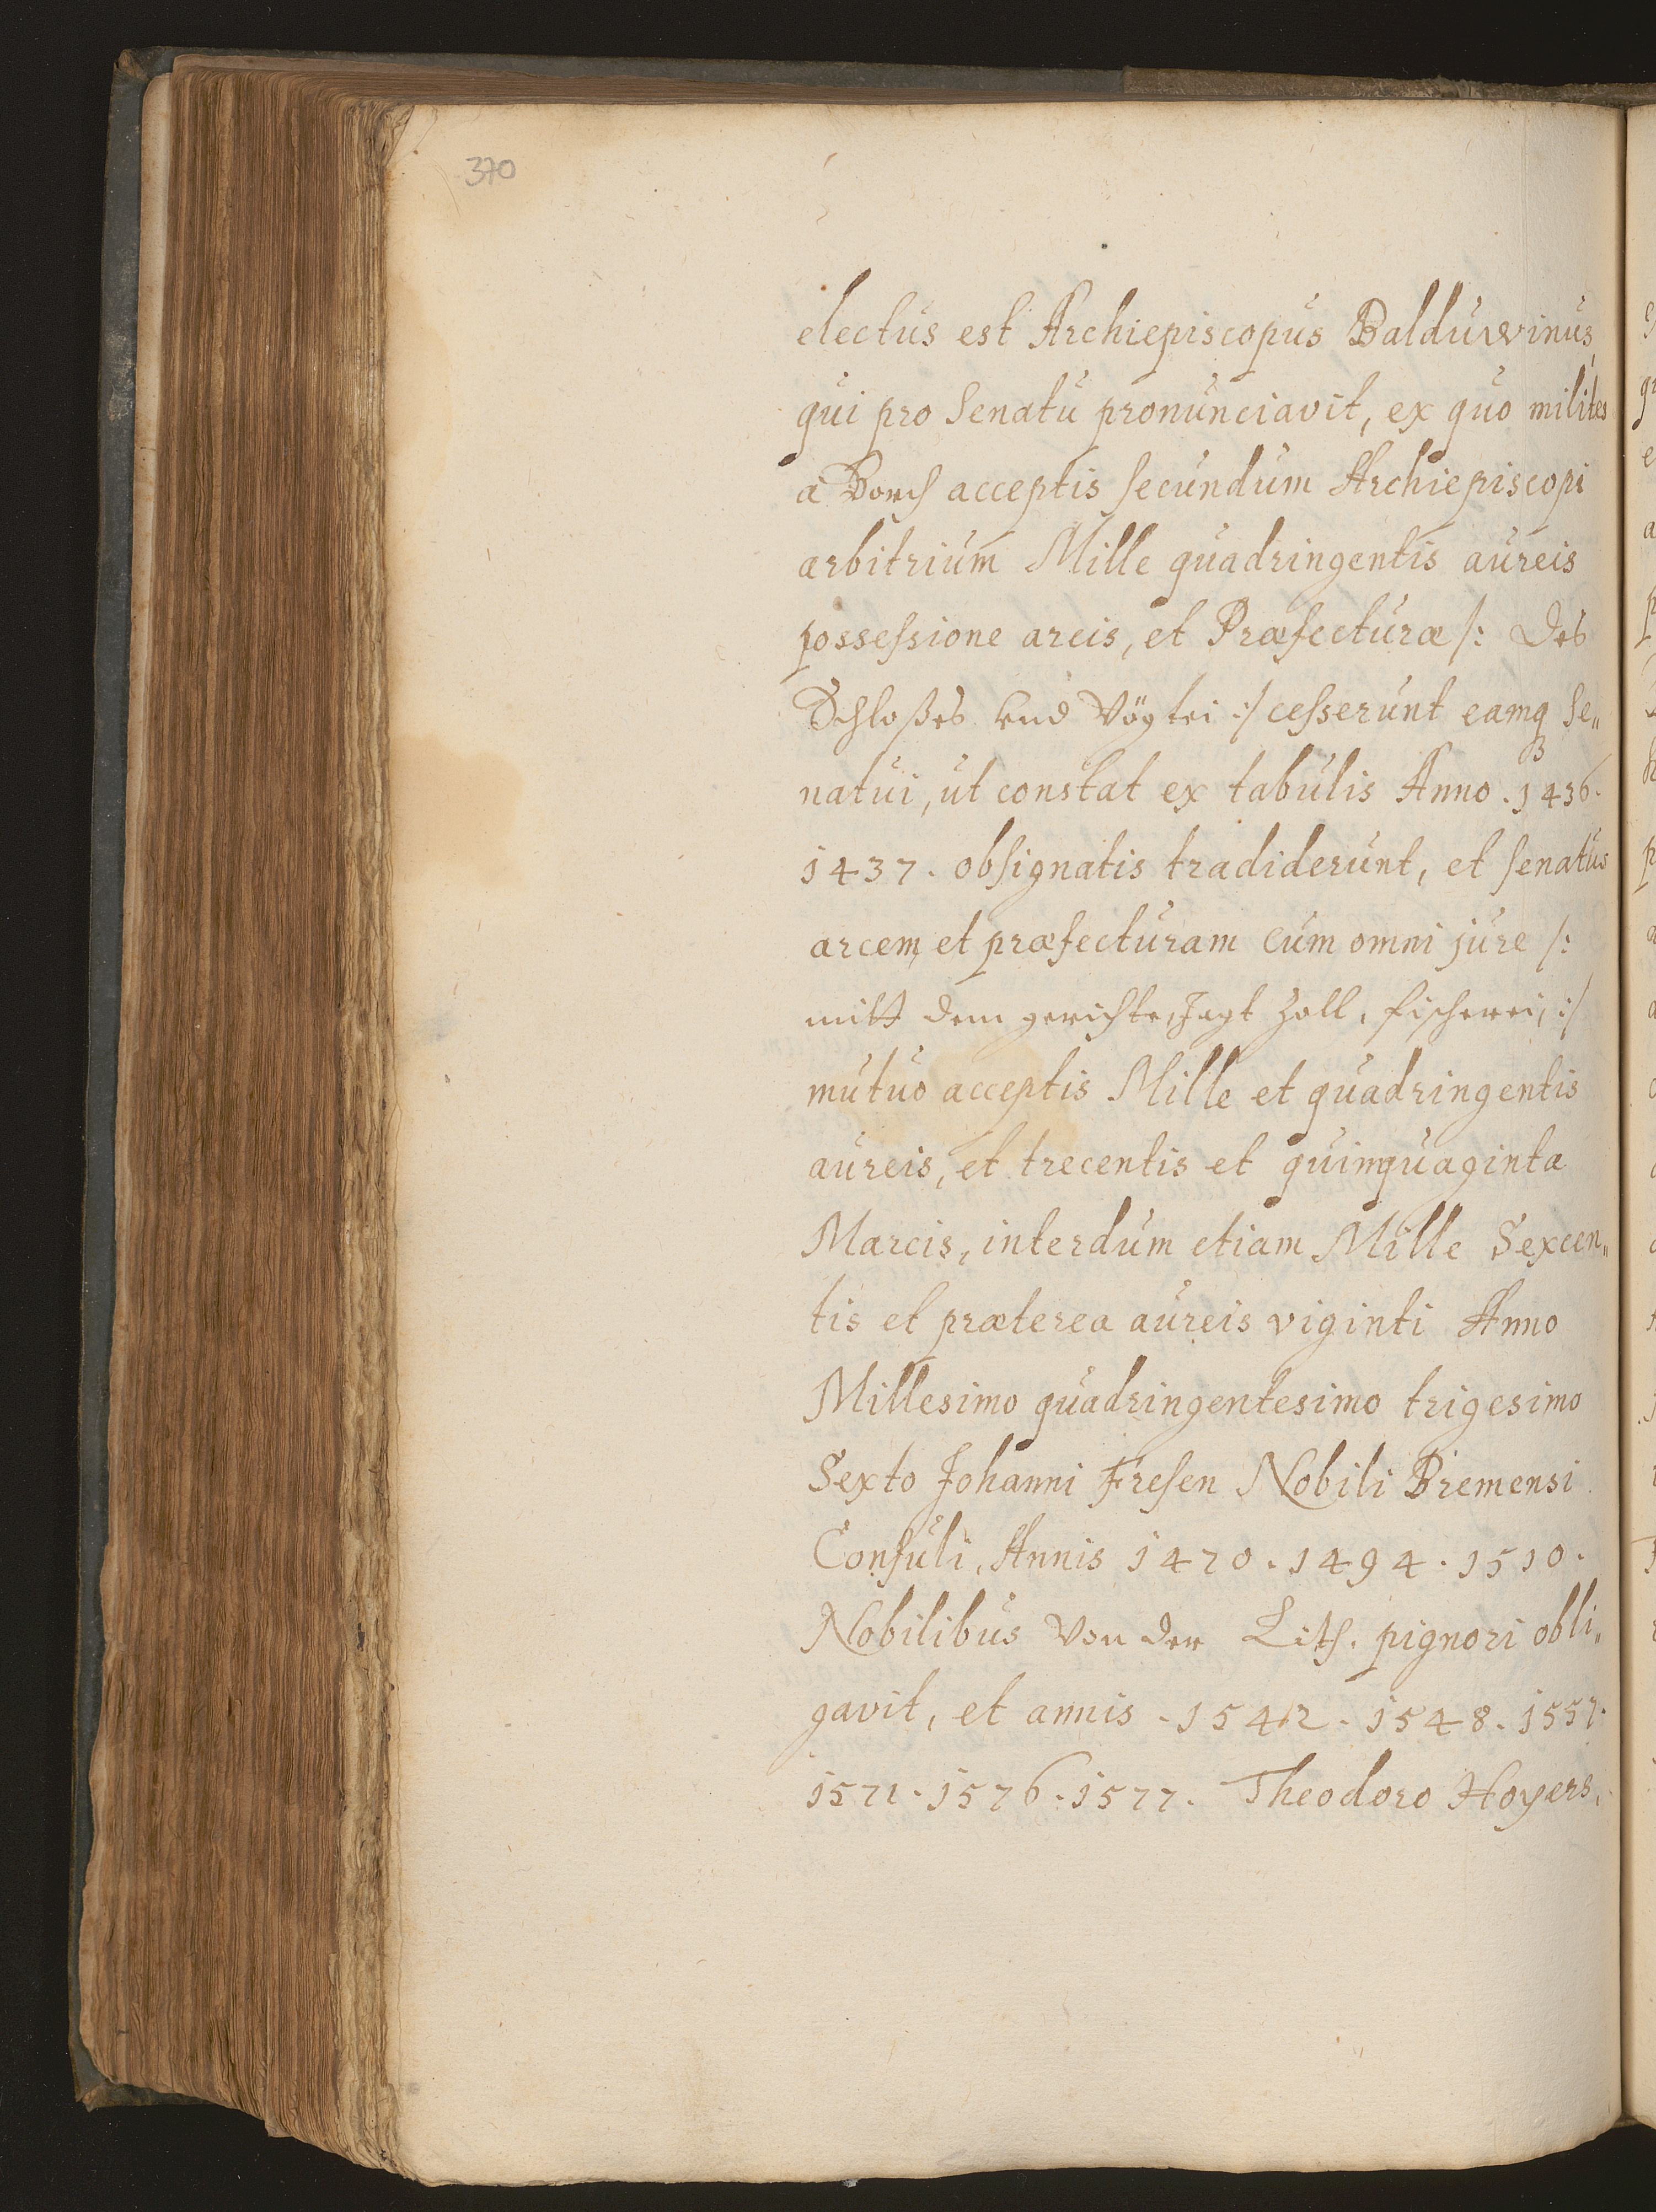 370
electus est Archiepiscopus Balduwinus,
qui pro Senatu pronunciavit, ex quo milites
à Borch acceptis secundum Archiepiscopi
arbitrium Mille quadringentis aureis
possessione arcis, et Præfecturæ /: des
Schloßes und Vögtei :/ cesserunt eamq Se„
natui, ut constat ex tabulis Anno . 1436.
1437. obsignatis tradiderunt, et senatus
arcem et præfecturam cum omni jure /:
mitt dem gerichte, Jagt Zoll, fischerei, :/
mutuo acceptis Mille et quadringentis
aureis, et trecentis et quinquaginta
Marcis, interdum etiam Mille Sexcen„
tis et præterea aureis viginti Anno
Millesimo quadringentesimo trigesimo
Sexto Johanni Fresen Nobili Bremensi
Consuli, Annis 1470. 1494. 1510.
Nobilibus Von der Lith. pignori obli„
gavit, et annis . 1542. 1548. 1557.
1571. 1576. 1577. Theodoro Hoyers,